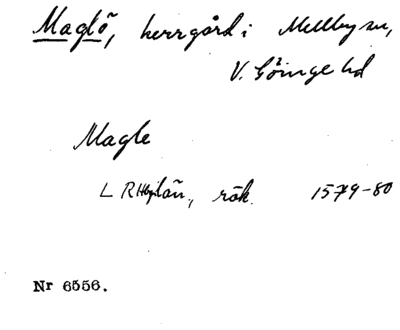 Maglö, herrgård i Mellby sn,
V. Göinge hd
Magle
L R Hbglän, räk. 1579-80
Nr 6556.